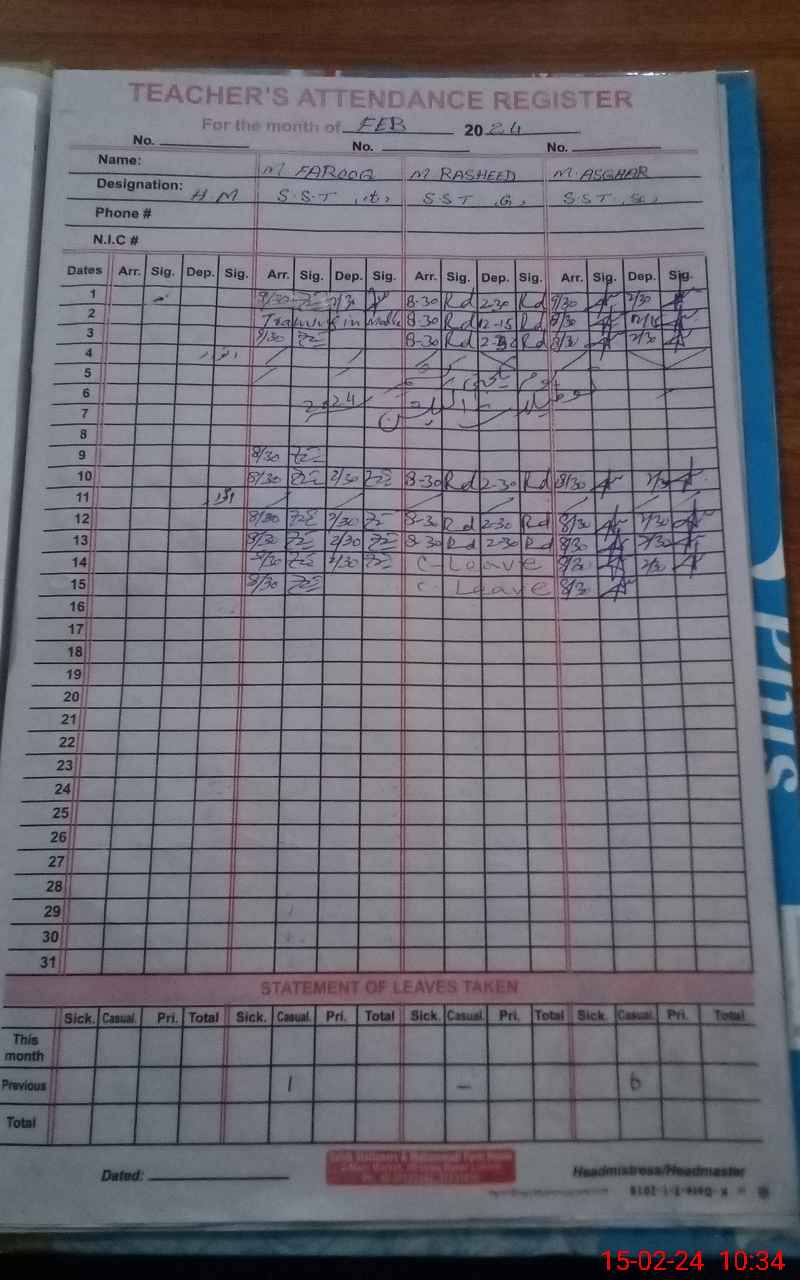 TEACHER'S ATTENDANCE REGISTER
For the month of FEB 2024
No. No. No.
Name: M FAROOQ M RASHEED M. ASGHAR
Designation: H.M S.S.T SST (G) S.S.T
Phone #
N.I.C #
Dates Arr. Sig. Dep. Sig. Arr. Sig. Dep. Sig. Arr. Sig. Dep. Sig. Arr. Sig. Dep. Sig.
1 8/30 2/30 8-30 Rd 2-30 Rd 8/30 2/30
2 Training in 8-30 Rd 12-15 Rd 8/30 12/15
3 8/30 8-30 Rd 2-30 Rd 8/30 2/30
4 اتوار
5
6 2024
7
8
9 8/30
10 8/30 2/30 8-30 Rd 2-30 Rd 8/30 2/30
11 اتوار
12 8/30 2/30 8-30 Rd 2-30 Rd 8/30 2/30
13 8/30 2/30 8-30 Rd 2-30 Rd 8/30 2/30
14 8/30 2/30 C-Leave 8/30 2/30
15 8/30 C-Leave 8/30
16
17
18
19
20
21
22
23
24
25
26
27
28
29
30
31
STATEMENT OF LEAVES TAKEN
Sick. Casual. Pri. Total Sick. Casual. Pri. Total Sick. Casual. Pri. Total Sick. Casual. Pri. Total
This month
Previous 1 – 6
Total
Dated: Headmistress/Headmaster
15-02-24 10:34